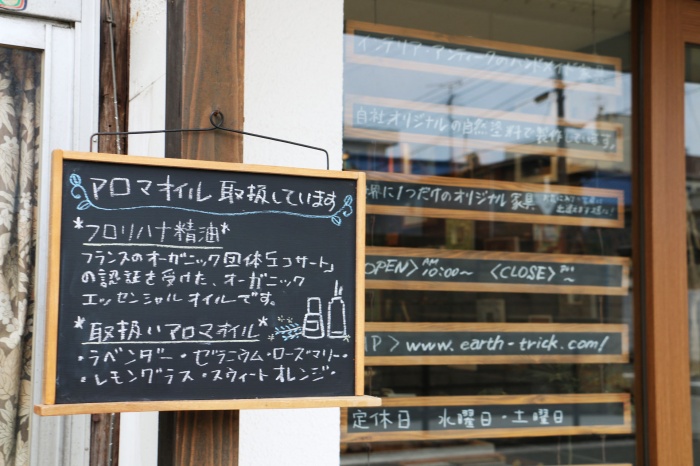 アロマオイル取扱しています
*フロリハナ精油*
フランスのオーガニック団体「エコサート」
の認証を受けた、オーガニック
エッセンシャルオイルです。
*取扱いアロマオイル*
・ラベンダー・ゼラニウム・ローズマリー・
・レモングラス・スウィートオレンジ・
インテリア・アンティークのハンドメイド家具
自社オリジナルの自然塗料で製作しています。
界に1つだけのオリジナル家具、
OPEN> AM 10:00～ <CLOSE>
HP > www.earth-trick.com/
定休日 水曜日・土曜日